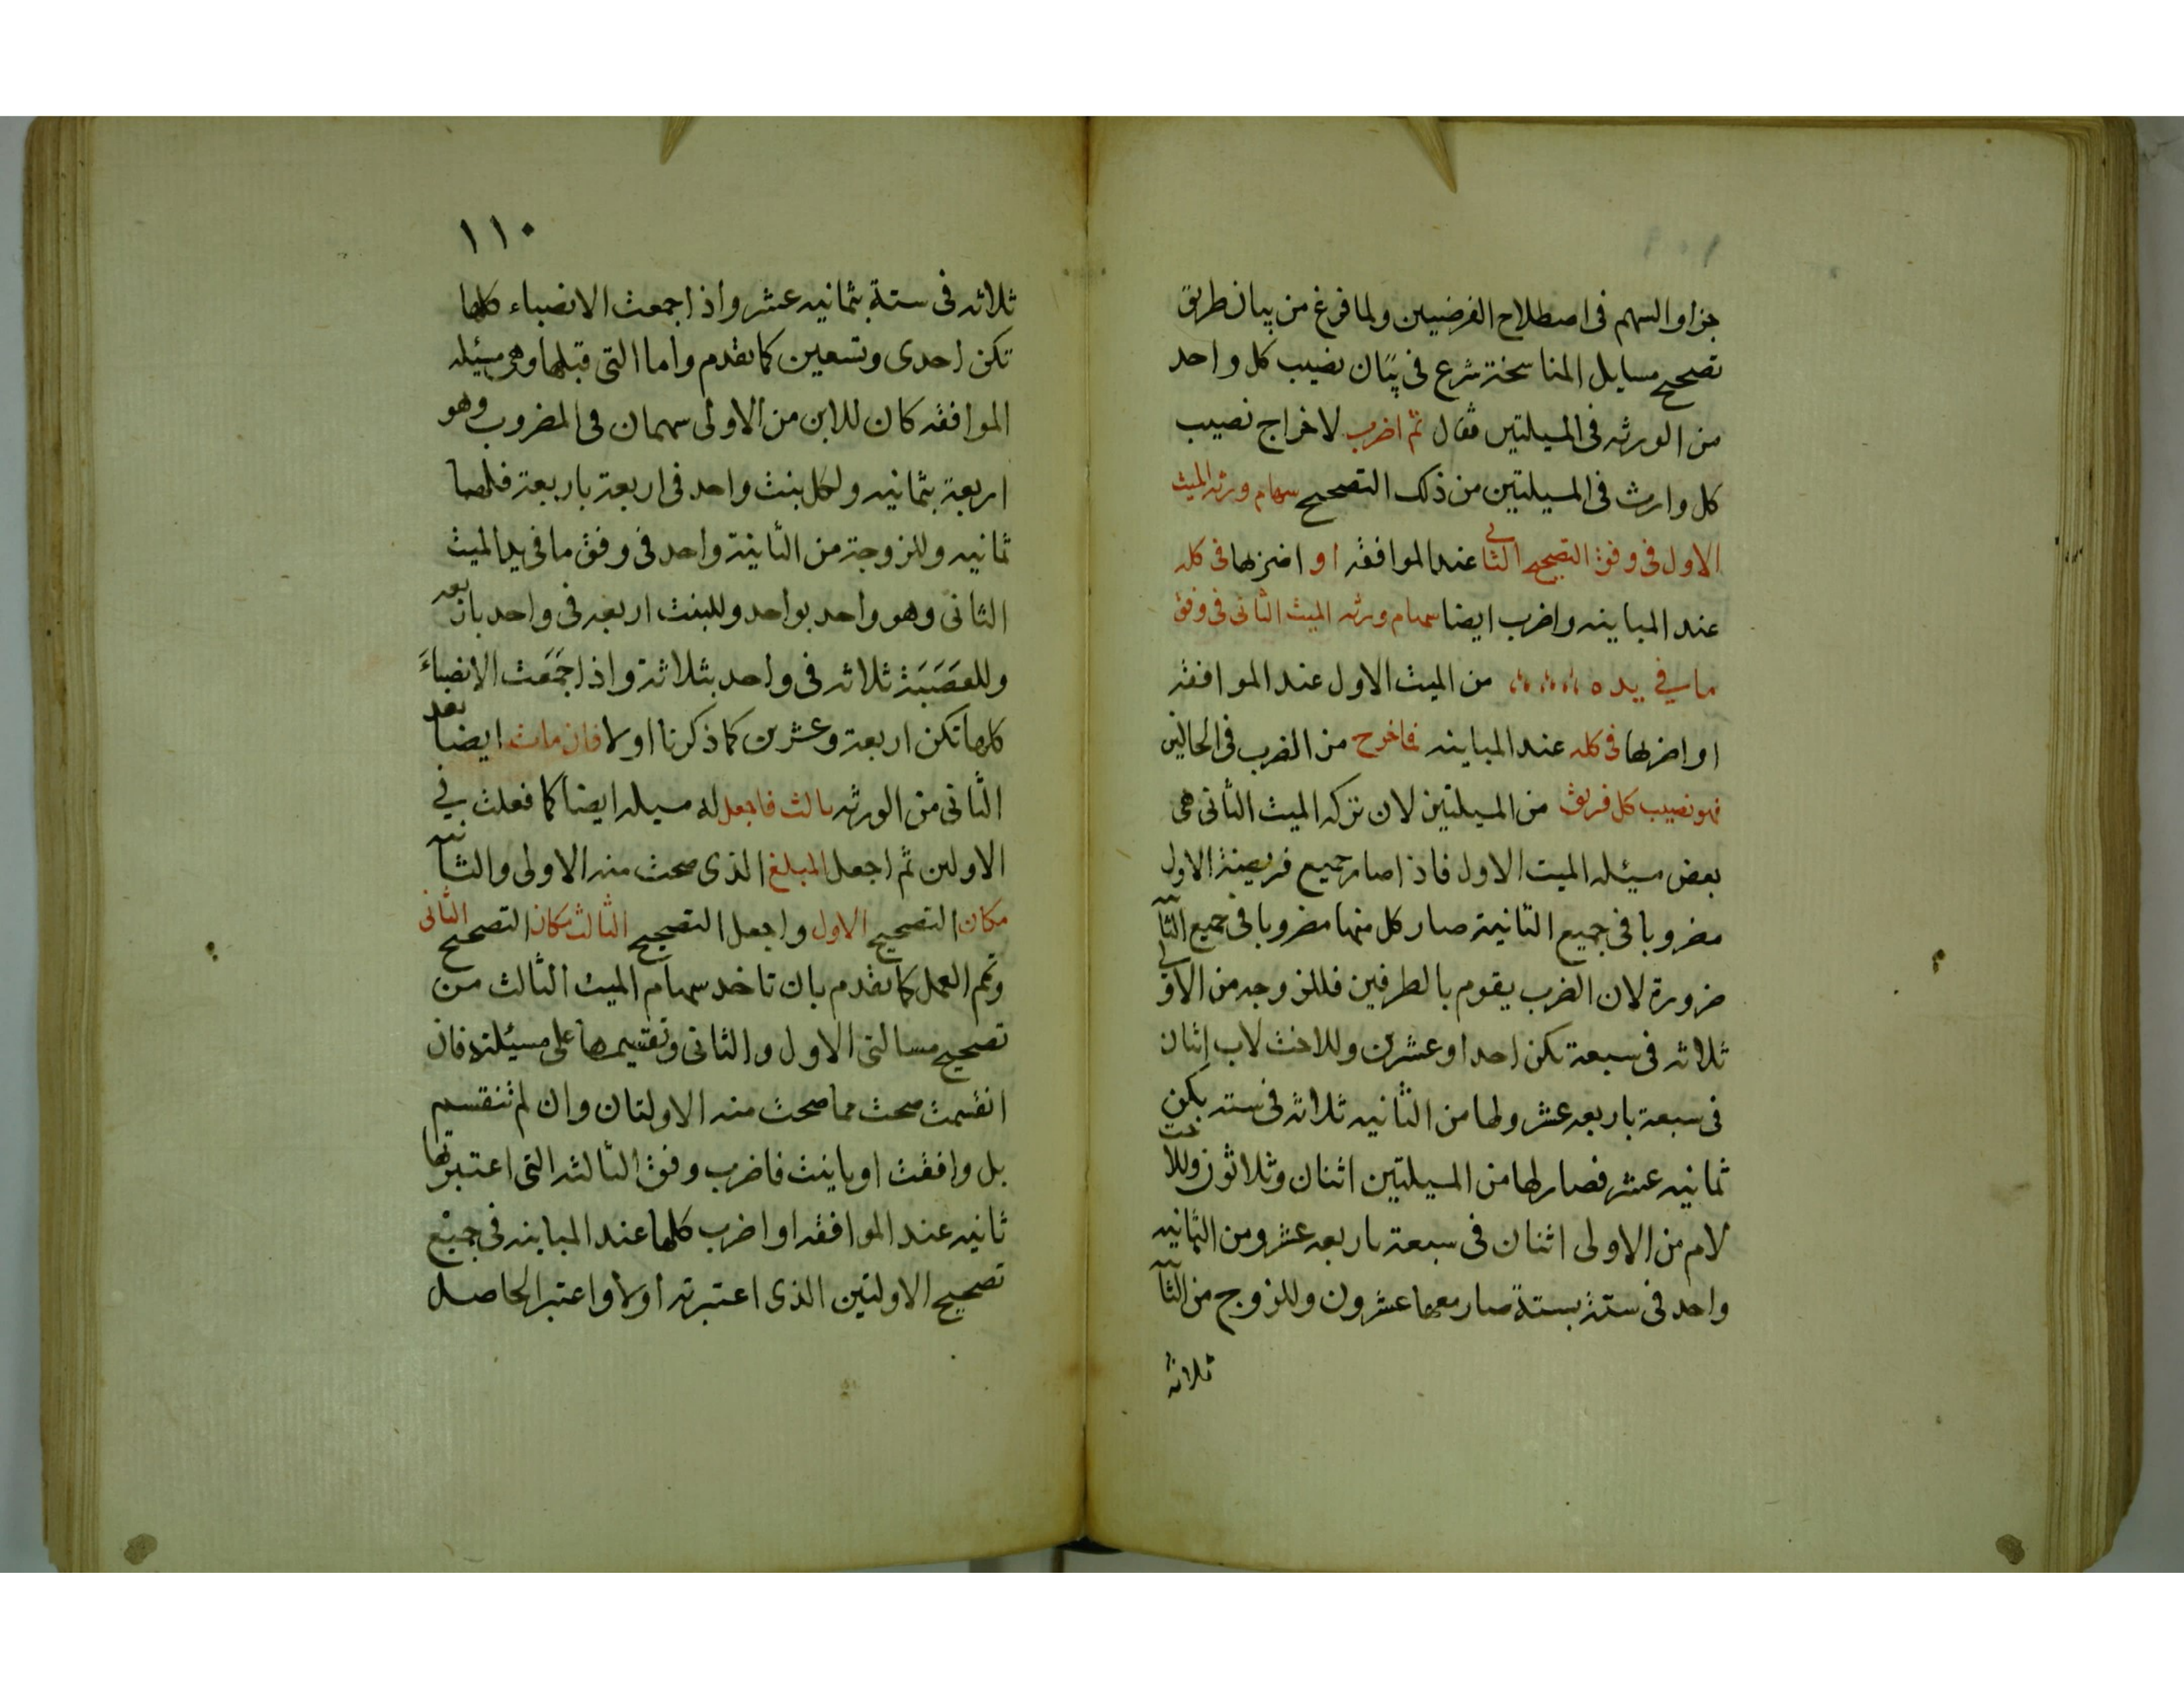 جزاو السهم فى اصطلاح الفرضيين ولما فرغ من بيان طريق
تصحيح مسايل المناسخة شرع فى بيان نصيب كل واحد
من الورثه فى المسيلتين فقال ثم اضرب لاخراج نصيب
كل وارث فى المسيلتين من ذلك التصحيح سهام ورثه الميت
الاول فى وفق التصحيح الثانى عند الموافقه او اضربها فى كله
عند المباينه واضرب ايضا سهام ورثه الميت الثانى فى وفق
ما فى يده من الميت الاول عند الموافقه
او اضربها فى كله عند المباينه فما خرج من الضرب فى الحالين
فهو نصيب كل فريق من المسيلتين لان تركه الميت الثانى هى
بعض مسيئله الميت الاول فاذا صار جميع فريضة الاول
مضروبا فى جميع الثانية صار كل منها مضروبا فى جميع الثانيه
ضرورة لان الضرب يقوم بالطرفين فللزوجه من الاولى
ثلاثه فى سبعة تكن احدا وعشرين وللاخت لاب اثنان
فى سبعة باربعه عشر ولها من الثانيه ثلاثه فى سته يكن
ثمانيه عشر فصار لها من المسيلتين اثنان وثلاثون وللاخت
لام من الاولى اثنان فى سبعة باربعه عشر ومن الثانيه
واحد فى ستة بستة صار معها عشرون وللزوج من الثانيه
ثلاثه
١١٠
ثلاثه فى ستة بثمانيه عشر واذا جمعت الانصباء كلها
تكن احدى وتسعين كما تقدم واما التى قبلها وهى مسيئله
الموافقه كان للابن من الاولى سهمان فى المضروب وهو
اربعة بثمانيه ولكل بنت واحد فى اربعة باربعة فلهما
ثمانيه وللزوجة من الثانية واحد فى وفق ما فى يد الميت
الثانى وهو واحد بواحد وللبنت اربعه فى واحد باربعه
وللعصبة ثلاثه فى واحد بثلاثة واذا جمعت الانصباء
كلها تكن اربعة وعشرين كما ذكرنا اولا فان مات ايضا بعد
الثانى من الورثه ثالث فاجعل له مسيله ايضا كما فعلت فى
الاولين ثم اجعل المبلغ الذى صحت منه الاولى والثانيه
مكان التصحيح الاول واجعل التصحيح الثالث مكان التصحيح الثانى
وتمم العمل كما تقدم بان تاخد سهام الميت الثالث من
تصحيح مسالتى الاول والثانى وتقسيمها على مسيئلته فان
انقسمت صحت مما صحت منه الاولتان وان لم تنقسم
بل وافقت او باينت فاضرب وفق الثالثه التى اعتبرتها
ثانيه عند الموافقه او اضرب كلها عند المباينه فى جميع
تصحيح الاولتين الذى اعتبرته اولا واعتبر الحاصل